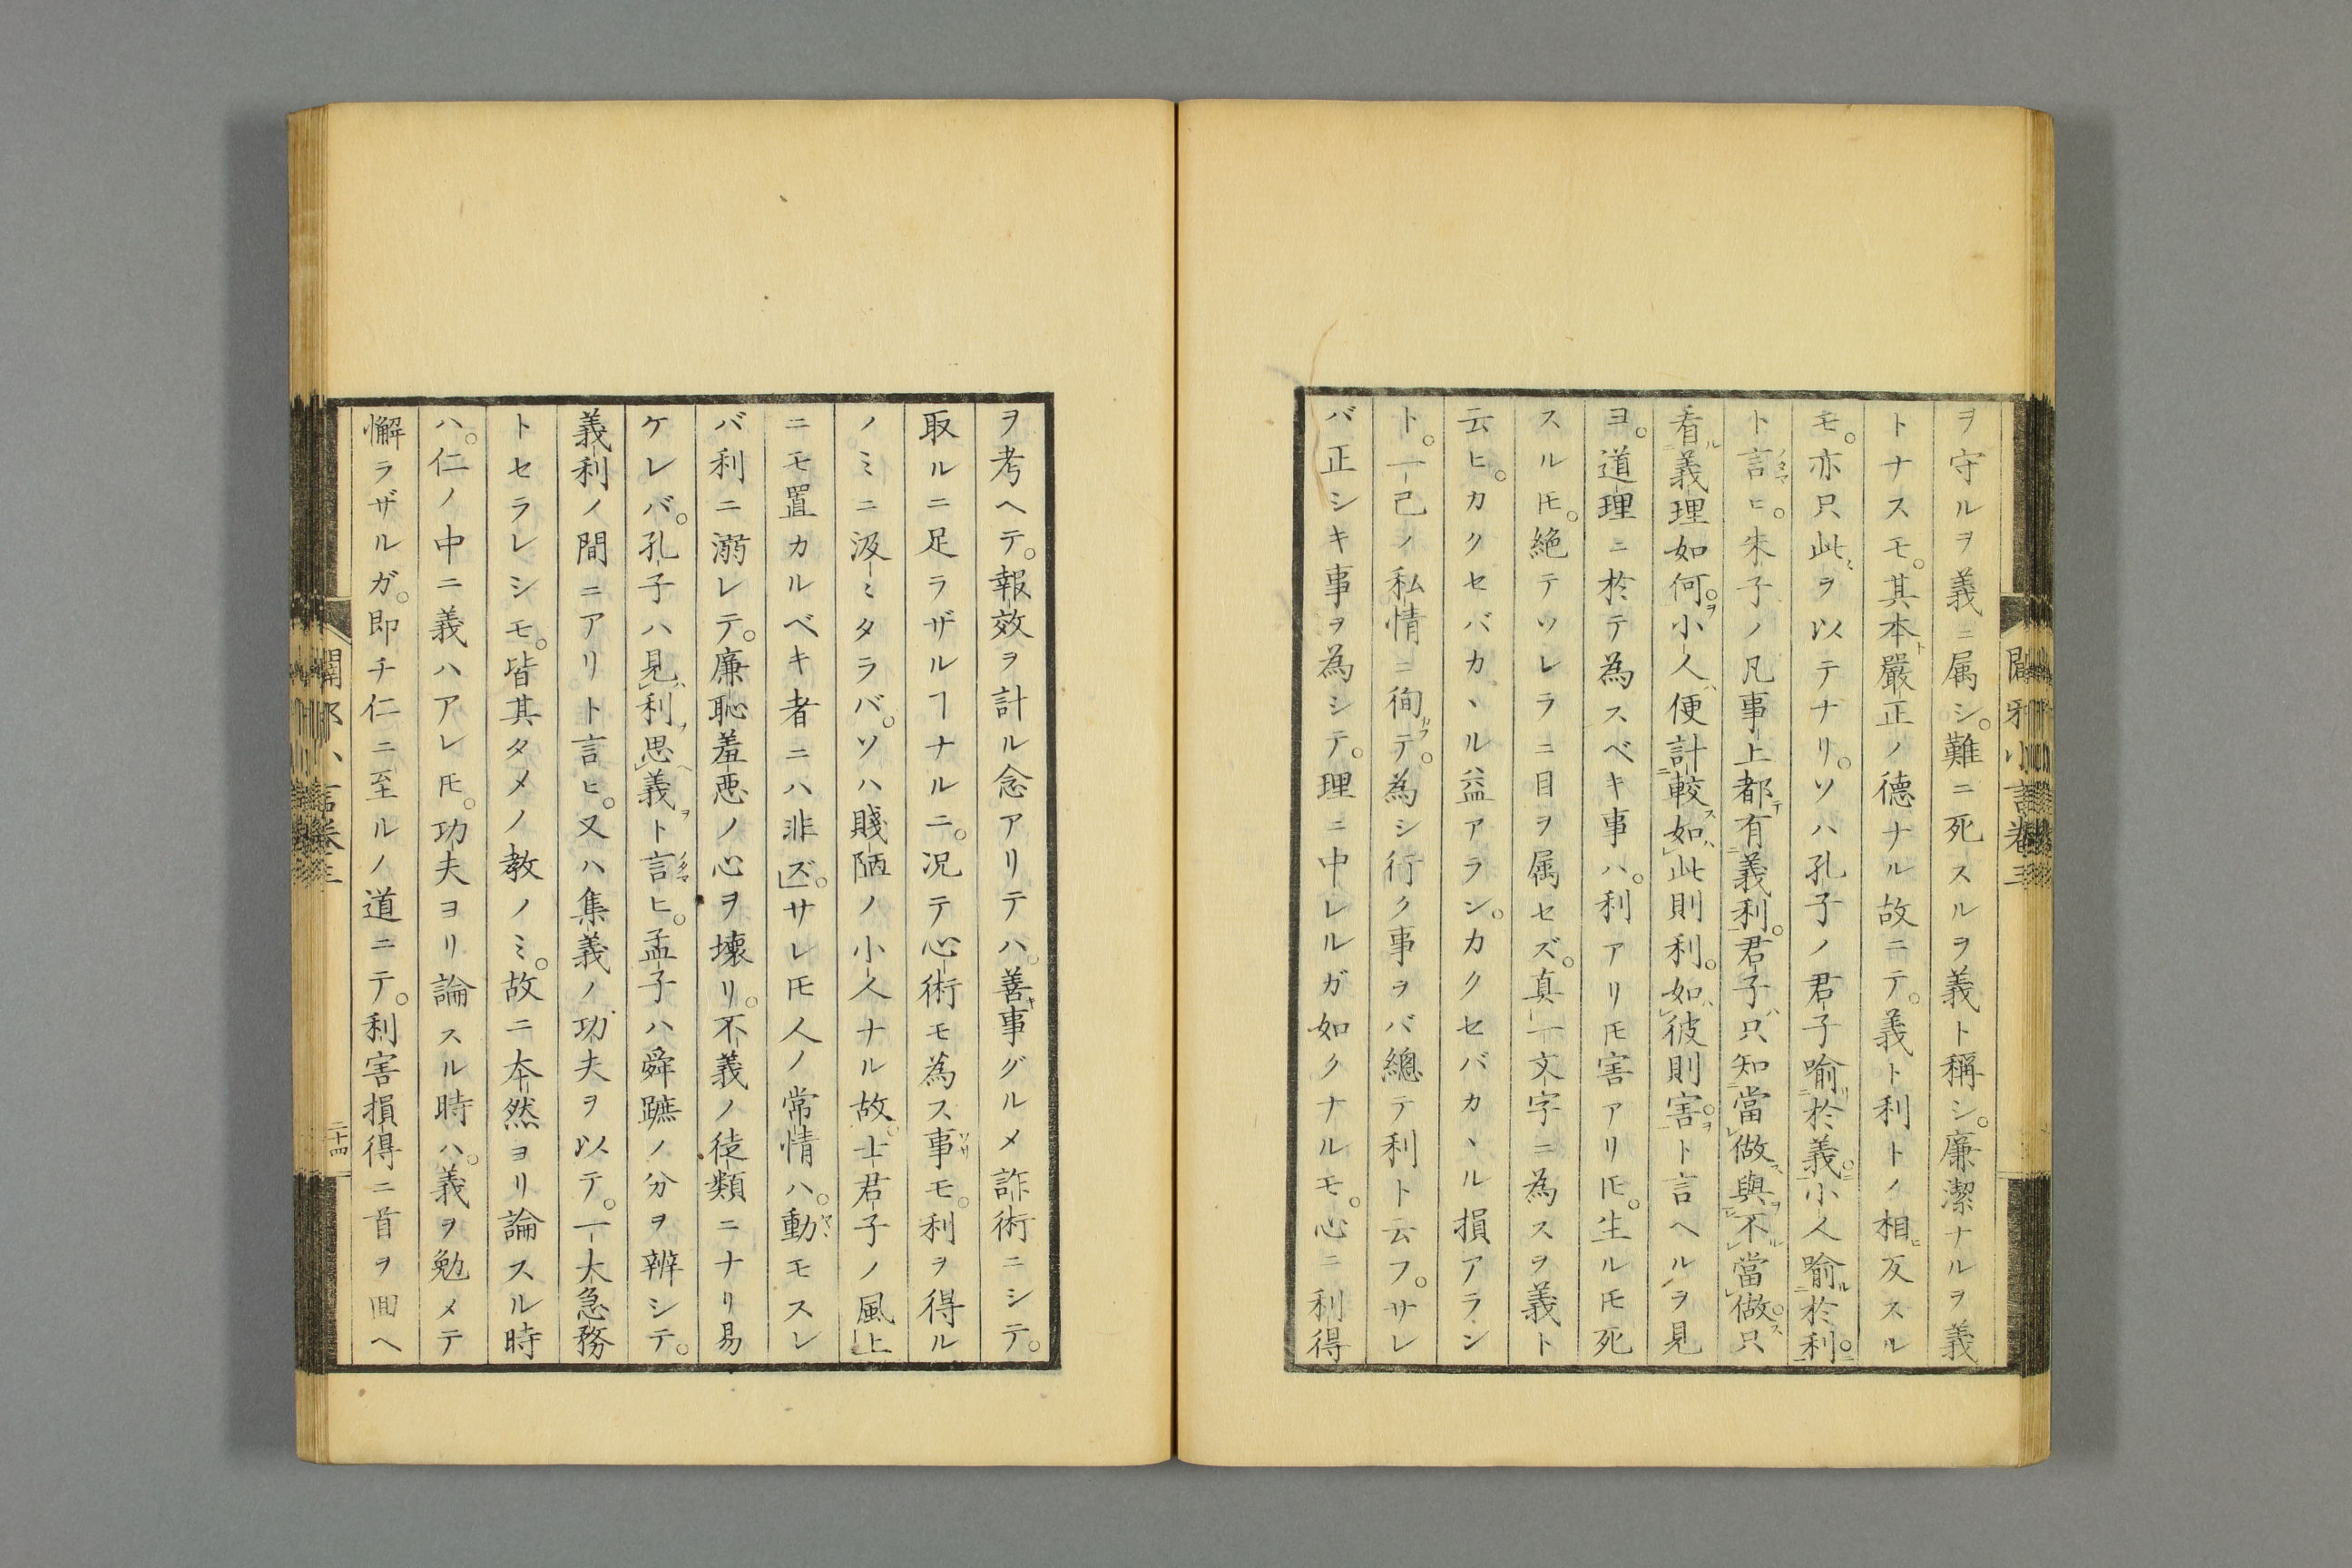 ヲ守ルヲ義ニ属シ。難ニ死スルヲ義ト稱シ。廉潔ナルヲ義
トナスモ。其本嚴正ノ德ナル故ニテ。義ト利トノ相反スル
モ。亦只此ヲ以テナリ。ソハ孔子ノ君子喻於義。小人喻於利。
ト言ヒ。朱子ノ凡事上都有義利。君子只知當做與不當做。只
看義理如何。小人便計較如此則利。如彼則害。ト言ヘルヲ見
ヨ。道理ニ於テ為スベキ事ハ。利アリ𪜈害アリ𪜈。生ル𪜈死
スル𪜈。絶テソレラニ目ヲ属セズ。真一文字ニ為スヲ義ト
云ヒ。カクセバカヽル益アラン。カクセバカヽル損アラン
ト。一己ノ私情ニ徇テ。為シ行ク事ヲバ總テ利ト云フ。サレ
バ正シキ事ヲ為シテ。理ニ中レルガ如クナルモ。心ニ利得
ヲ考ヘテ。報效ヲ計ル念アリテハ。善事グルメ詐術ニシテ。
取ルニ足ラザルヿナルニ。况テ心術モ為ス事モ。利ヲ得ル
ノミニ汲ミタラバ。ソハ賤陋ノ小人ナル故。士君子ノ風上
ニモ置カルベキ者ニハ非ズ。サレ𪜈人ノ常情ハ。動モスレ
バ利ニ溺レテ。廉恥羞悪ノ心ヲ壊リ。不義ノ徒類ニナリ易
ケレバ。孔子ハ見利思義ト言ヒ。孟子ハ舜蹠ノ分ヲ辨シテ。
義利ノ間ニアリト言ヒ。又ハ集義ノ功夫ヲ以テ。一大急務
トセラレシモ。皆其タメノ教ノミ。故ニ本然ヨリ論スル時
ハ。仁ノ中ニ義ハアレ𪜈。功夫ヨリ論スル時ハ。義ヲ勉メテ
懈ラザルガ。即チ仁ニ至ルノ道ニテ。利害損得ニ首ヲ囬ヘ
闢邪小言卷三
二十四